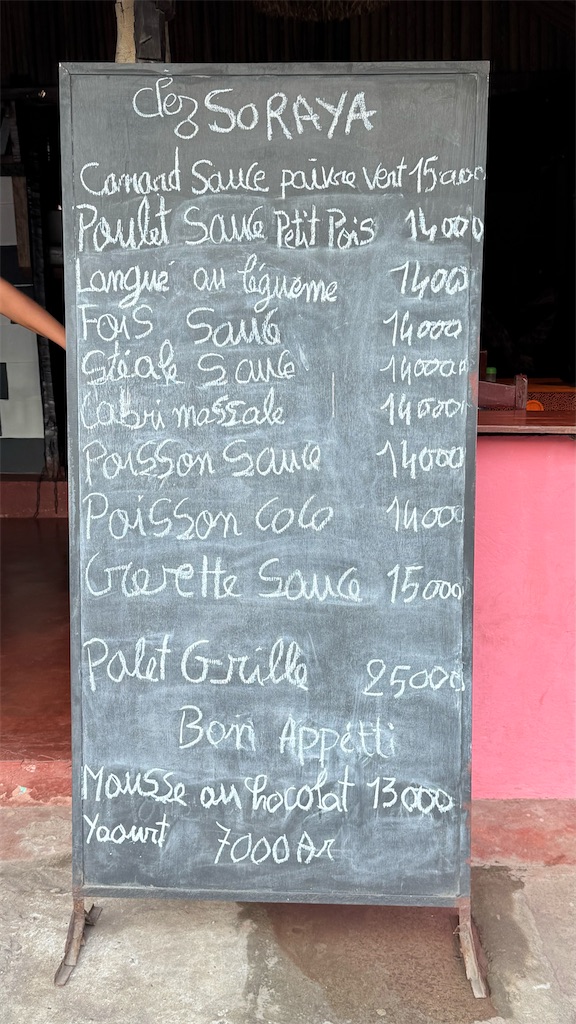 Chez SORAYA
Canard Sauce paivre vert 15000
Poulet Sauce Petit Pois 14000
Langué au légueme 14000
Fois Sauce 14000
Stéak Sauce 14000
Cabri massale 14000
Poisson Sauce 14000
Poisson coco 14000
Crevette Sauce 15000
Polet Grille 25000
Bon Appétti
Mousse au hocolat 13000
Yaourt 7000 Ar